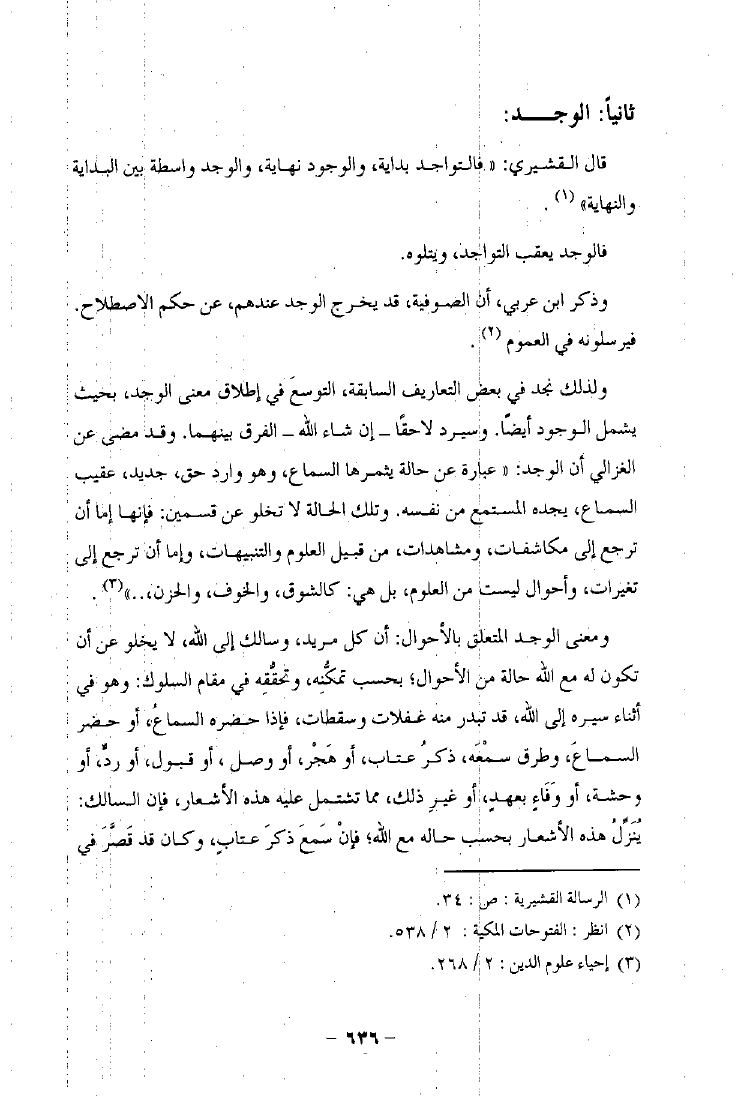 ثانياً: الوجـــد:
قال القشيري: «فالتواجد بداية، والوجود نهاية، والوجد واسطة بين البداية
والنهاية» (١) .
فالوجد يعقب التواجد، ويتلوه.
وذكر ابن عربي، أن الصوفية، قد يخرج الوجد عندهم، عن حكم الاصطلاح.
فيرسلونه في العموم (٢) .
ولذلك نجد في بعض التعاريف السابقة، التوسعَ في إطلاق معنى الوجد، بحيث
يشمل الوجود أيضًا. وسيرد لاحقًا ــ إن شاء الله ــ الفرق بينهما. وقد مضى عن
الغزالي أن الوجد: «عبارة عن حالة يثمرها السماع، وهو وارد حق، جديد، عقيب
السماع، يجده المستمع من نفسه. وتلك الحالة لا تخلو عن قسمين: فإنها إما أن
ترجع إلى مكاشفات، ومشاهدات، من قبيل العلوم والتنبيهات، وإما أن ترجع إلى
تغيرات، وأحوال ليست من العلوم، بل هي: كالشوق، والخوف، والحزن،..»(٣) .
ومعنى الوجد المتعلق بالأحوال: أن كل مريد، وسالك إلى الله، لا يخلو عن أن
تكون له مع الله حالة من الأحوال؛ بحسب تمكُّنه، وتحقُّقه في مقام السلوك: وهو في
أثناء سيره إلى الله، قد تبدر منه غفلات وسقطات، فإذا حضره السماعُ، أو حضر
السماعَ، وطرق سمْعَه، ذكرُ عتاب، أو هَجْر، أو وصل ، أو قبول، أو ردٍّ، أو
وحشة، أو وَفَاءٍ بعهدٍ، أو غيرِ ذلك، مما تشتمل عليه هذه الأشعار، فإن السالك:
يُنَزِّلُ هذه الأشعار بحسب حاله مع الله؛ فإنْ سَمعَ ذكرَ عتابٍ، وكان قد قَصَّرَ في
(١) الرسالة القشيرية : ص : ٣٤.
(٢) انظر : الفتوحات المكية : ٢ / ٥٣٨.
(٣) إحياء علوم الدين : ٢ / ٢٦٨.
- ٦٣٦ -